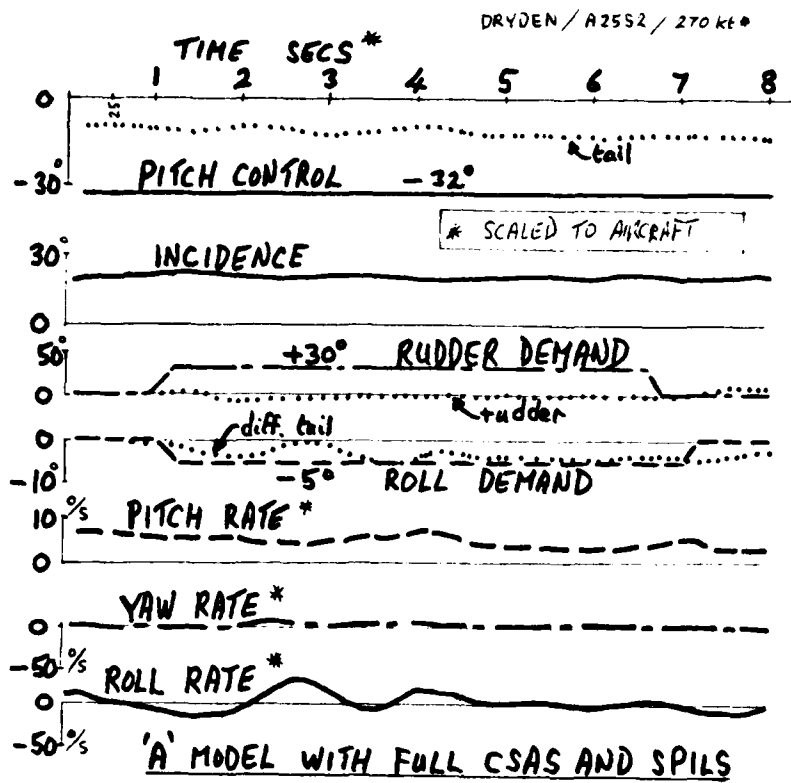 DRYDEN / A25S2 / 270 kt*
TIME SECS*
1 2 3 4 5 6 7 8
0
.25
tail
-30°
PITCH CONTROL -32°
* SCALED TO AIRCRAFT
30°
INCIDENCE
0
50°
+30° RUDDER DEMAND
0
rudder
diff. tail
0
-10°
-5° ROLL DEMAND
10 °/s
PITCH RATE*
0
YAW RATE*
0
-50 °/s
ROLL RATE*
0
-50 °/s
'A' MODEL WITH FULL CSAS AND SPILS